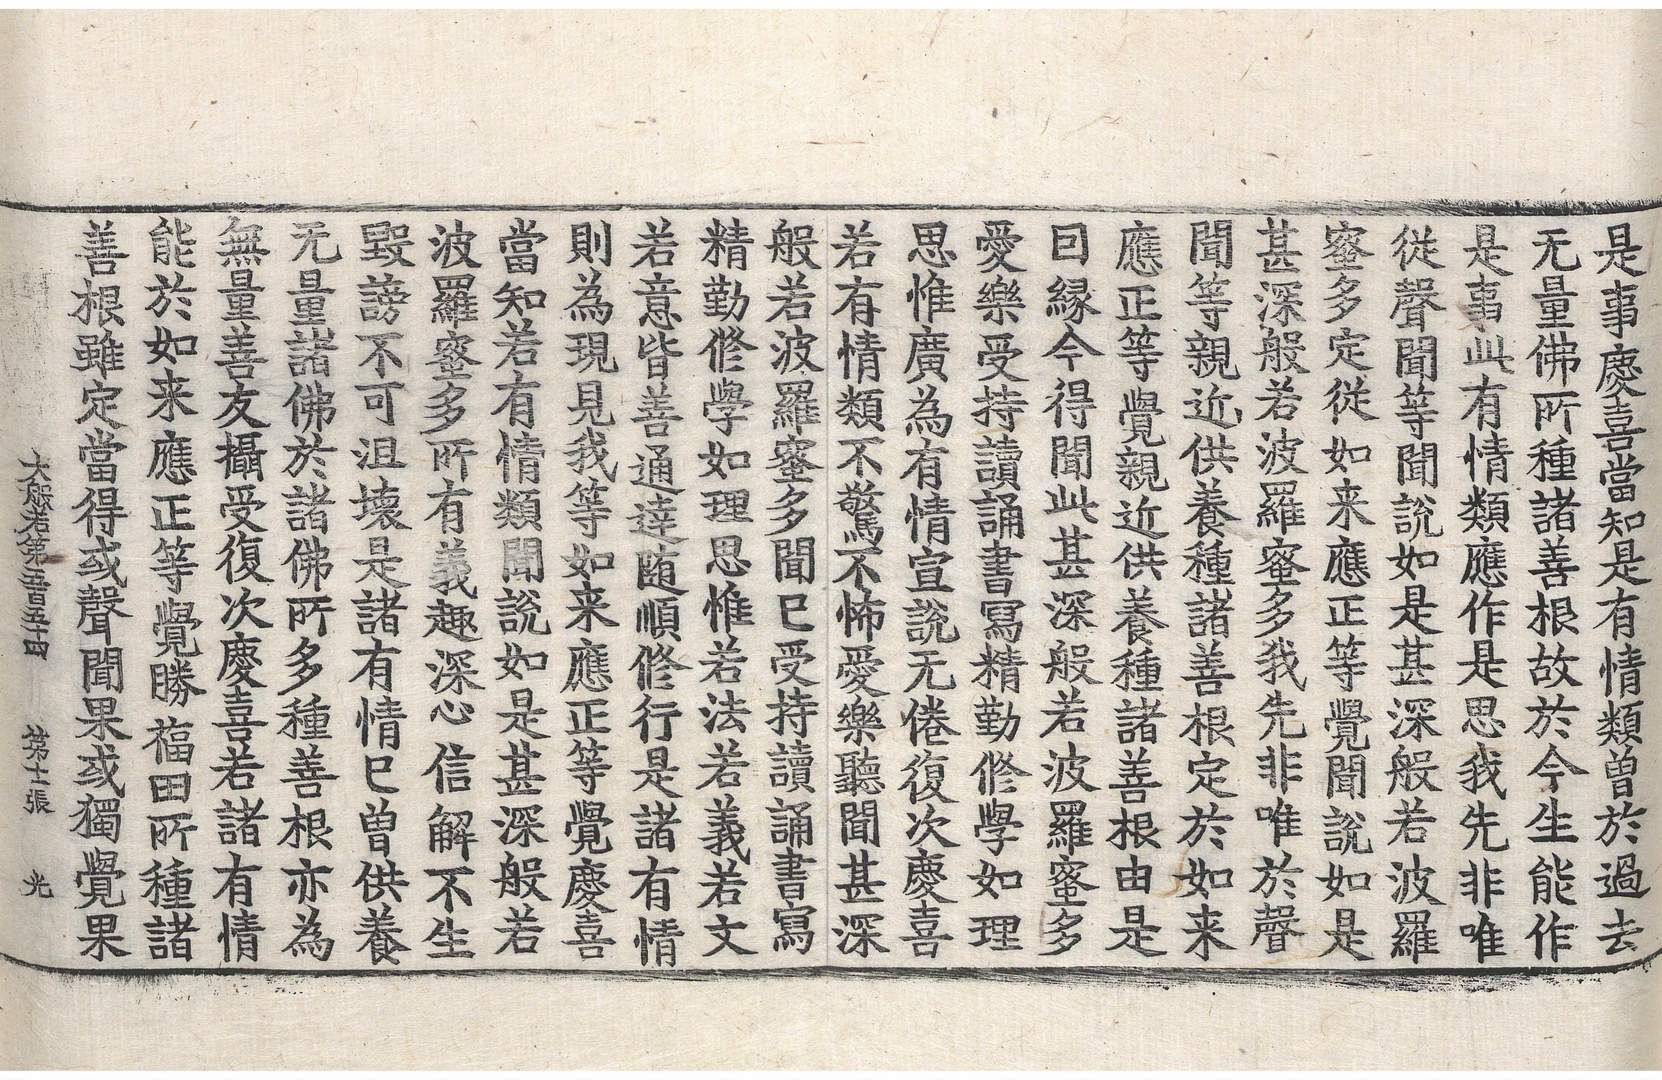 是事慶喜當知是有情類曽於過去
无量佛所種諸善根故於今生能作
是事此有情類應作是思我先非唯
從聲聞等聞說如是甚深般若波羅
蜜多定從如来應正等覺聞說如是
甚深般若波羅蜜多我先非唯於聲
聞等親近供養種諸善根定於如来
應正等覺親近供養種諸善根由是
囙縁今得聞此甚深般若波羅蜜多
愛樂受持讀誦書寫精勤修學如理
思惟廣為有情宣說无倦復次慶喜
若有情類不驚不怖愛樂聽聞甚深
般若波羅蜜多聞已受持讀誦書寫
精勤修學如理思惟若法若義若文
若意皆善通達随順修行是諸有情
則為現見我等如来應正等覺慶喜
當知若有情類聞說如是甚深般若
波羅蜜多所有義趣深心信解不生
毀謗不可沮壊是諸有情已曽供養
无量諸佛於諸佛所多種善根亦為
無量善友攝受復次慶喜若諸有情
能於如来應正等覺勝福田所種諸
善根雖定當得或聲聞果或獨覺果
大般若第五百五十四 第十一張 光